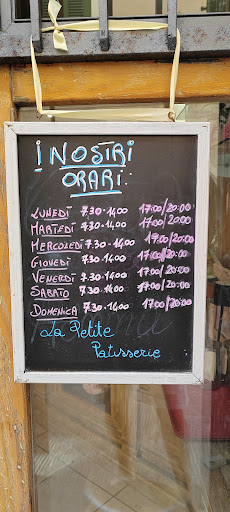 I NOSTRI
ORARI:
LUNEDÌ 7.30-14.00 17:00/20:00
MARTEDÌ 7.30-14.00 17:00/20:00
MERCOLEDÌ 7.30-14.00 17:00/20:00
GIOVEDÌ 7.30-14.00 17:00/20:00
VENERDÌ 7.30-14.00 17:00/20:00
SABATO 7.30-14.00 17:00/20:00
DOMENICA 7.30-14.00 17:00/20:00
La Petite
Patisserie